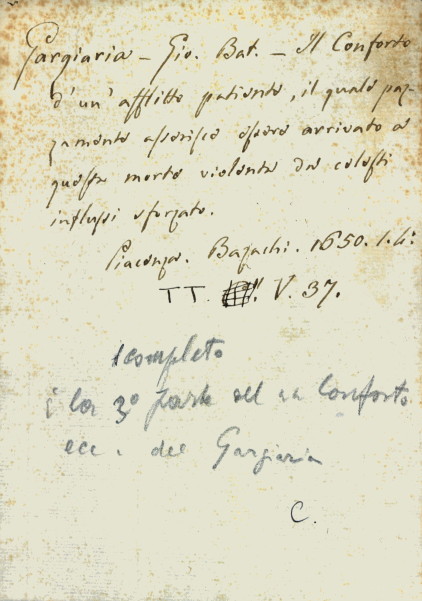 Gargiaria - Gio. Bat. - Il Conforto
d'un' afflitto patiente, il quale paz-
zamente asserisce essere arrivato a
questa morte violenta da celesti
influssi sforzato.
Piacenza. Bazachi. 1650. 1.
TT. V. 37.
completo
è la 3º parte del Conforto
ecc. del Gargiaria
C.